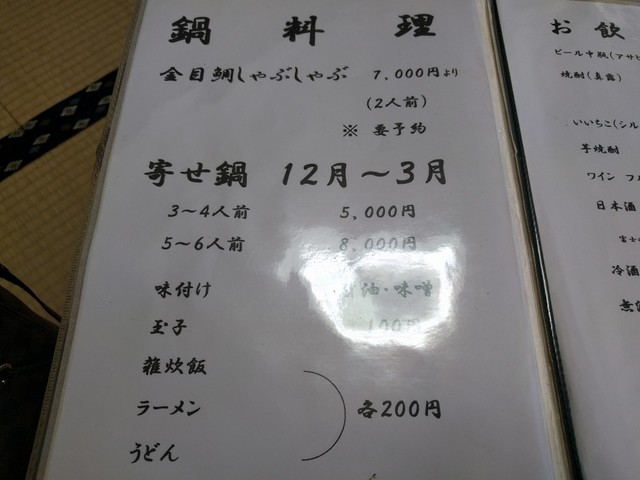 鍋料理
金目鯛しゃぶしゃぶ 7,000円より
(2人前)
※ 要予約
寄せ鍋 12月~3月
3~4人前 5,000円
5~6人前 8,000円
味付け 油・味噌
玉子 100円
雑炊飯
ラーメン
うどん
各200円
お飲
ビール中瓶(アサヒ
焼酎(真露)
いいちこ(シル
芋焼酎
ワイン フル
日本酒
冷酒